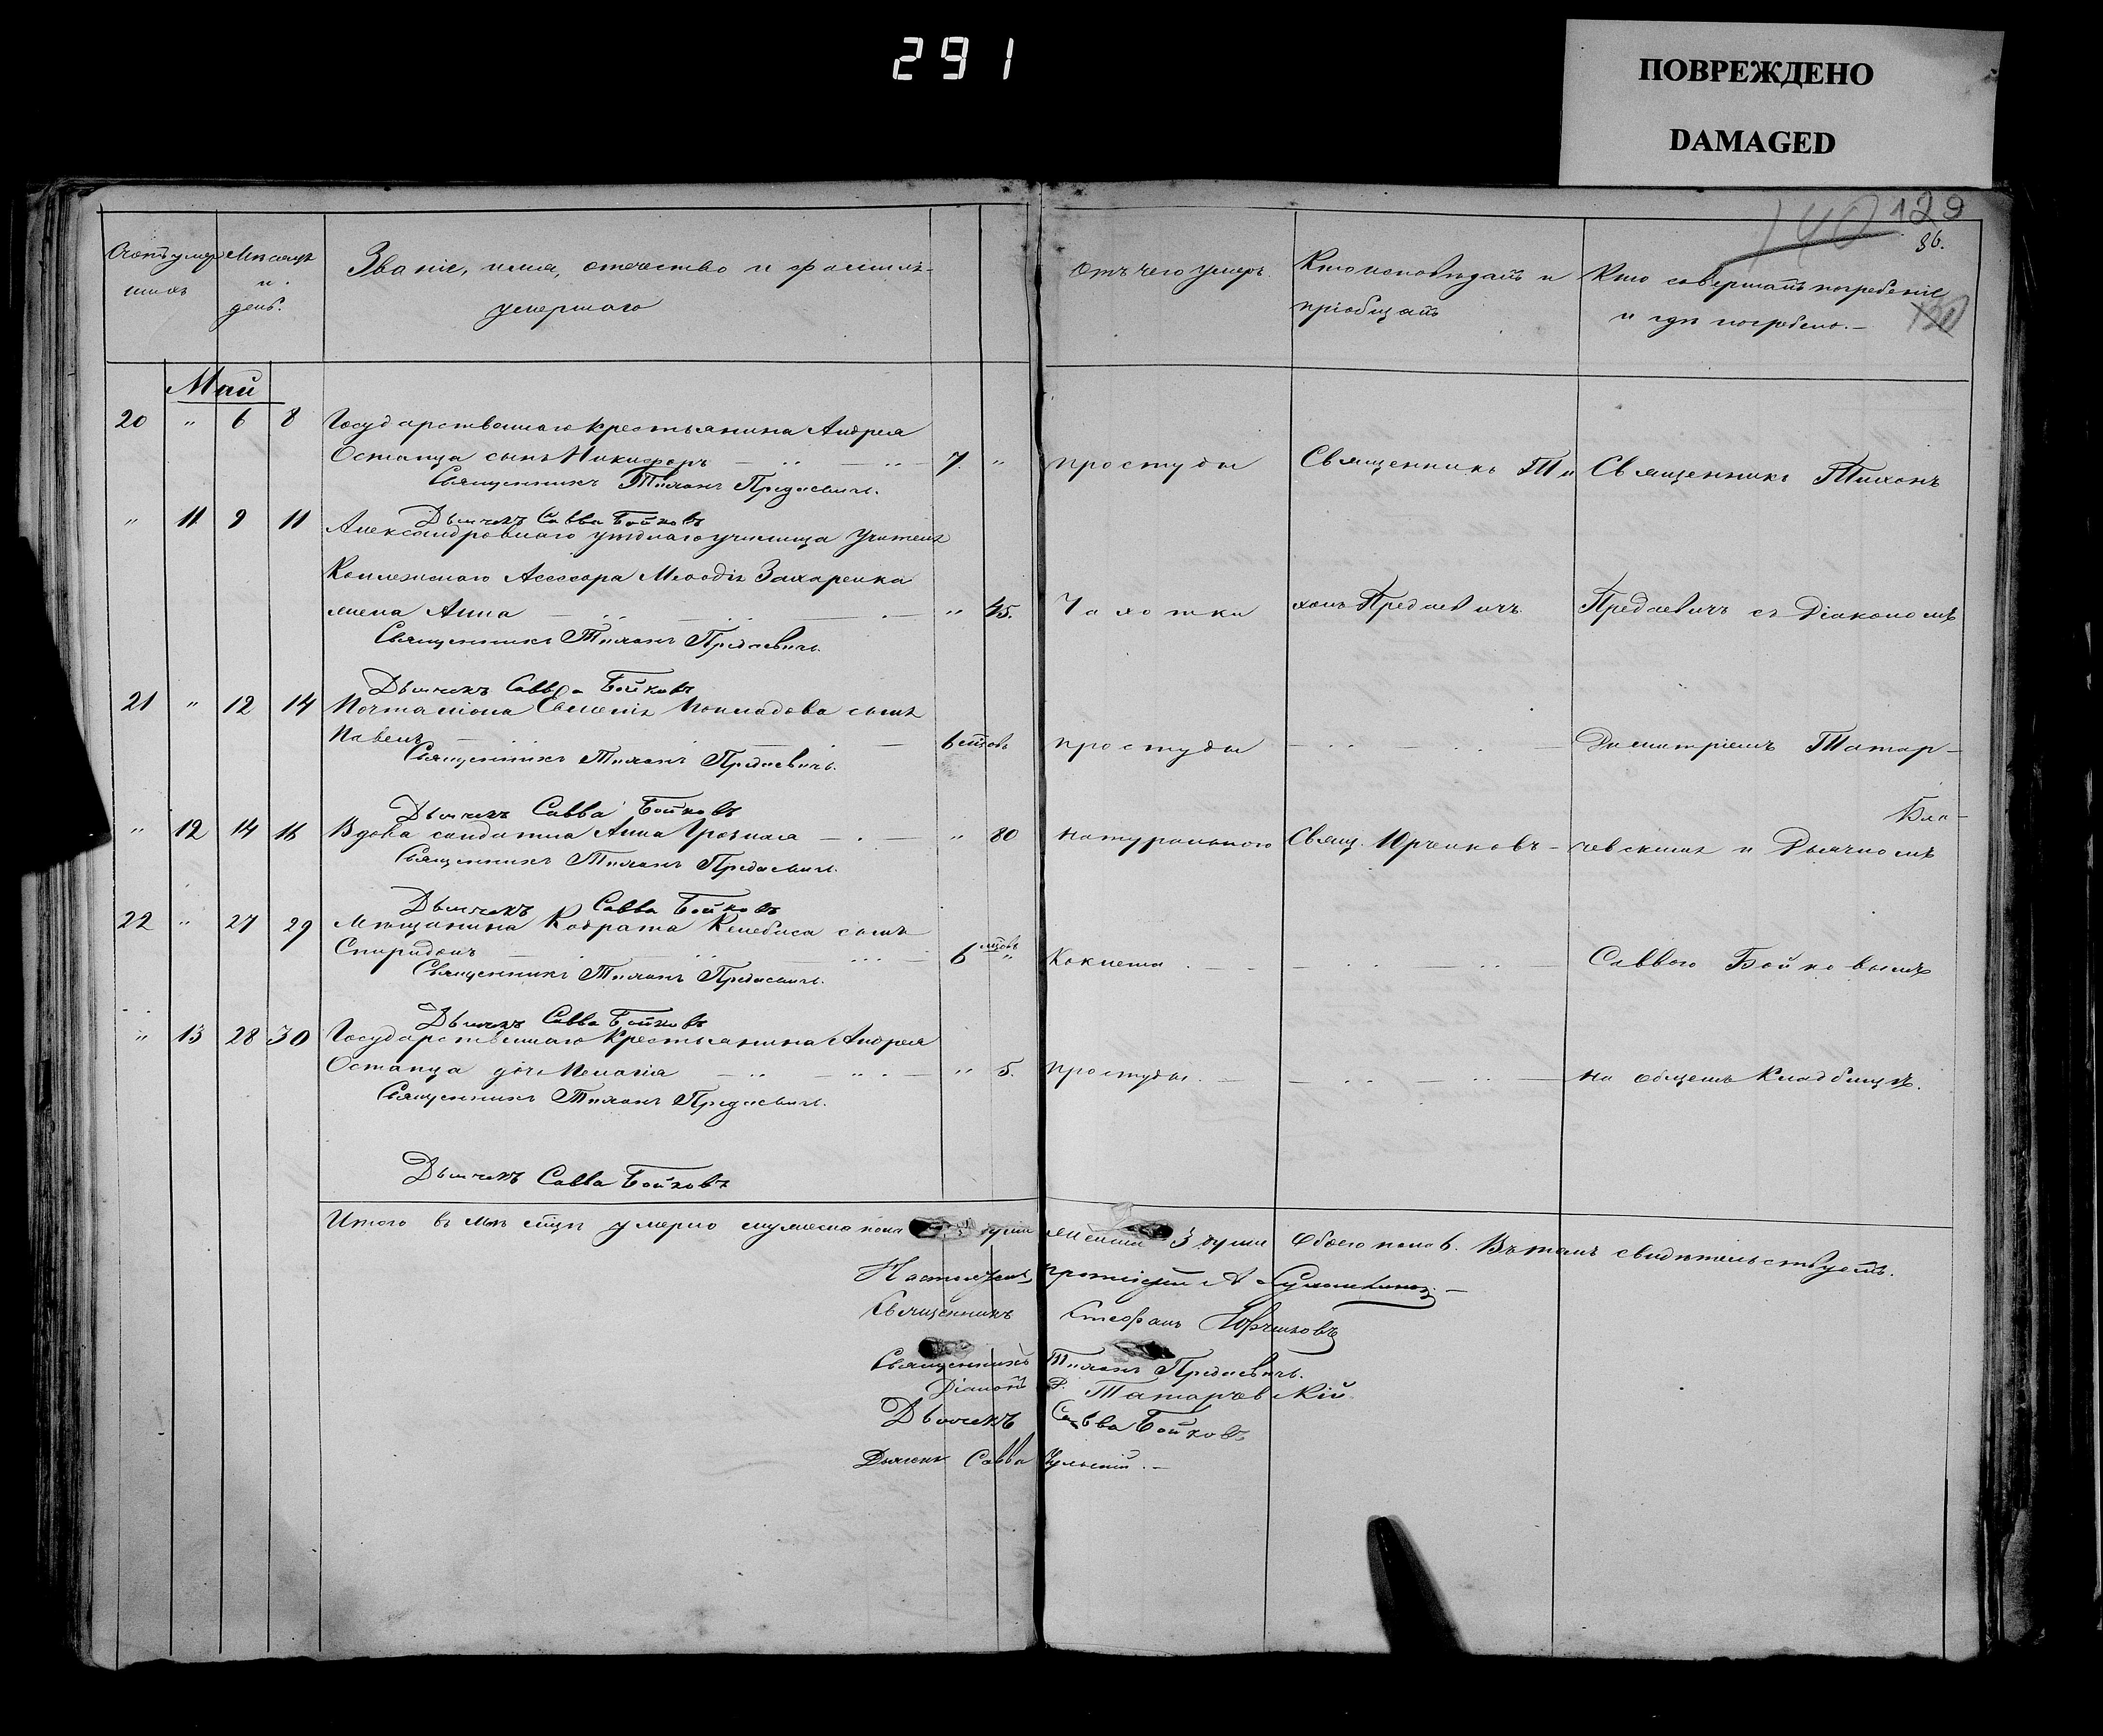 291
ПОВРЕЖДЕНО
DAMAGED
140 129
86.
130
Счетъ умершихъ
Мѣсяцъ и день.
Званіе, имя, отечество и фамилія умершаго
Отъ чего умеръ.
Кто исповѣдалъ и пріобщалъ
Кто совершалъ погребеніе и гдѣ погребено.—
Май
20 " 6 8 Государственнаго крестьянина Андрея
Остапца сынъ Никифоръ 7. " простуды Священникъ Ти Священникъ Тихонъ
Священникъ Тихонъ Предаевичъ.
Дьячекъ Савва Бойковъ
" 11 9 11 Александровнаго уѣзднаго училища Учителя
Коллежскаго Асессора Меѳодія Захаренка
жена Анна " 45. Чахотки хонъ Предаевичъ. Предаевичъ съ Діакономъ
Священникъ Тихонъ Предаевичъ.
Дьячекъ Савва Бойковъ
21 " 12 14 Почталіона Евсевія сынъ
Павелъ 6 мцовъ простуды Димитріемъ Татар-
Священникъ Тихонъ Предаевичъ.
Дьячекъ Савва Бойковъ
" 12 14 16 Вдова солдатка Анна Грозная " 80 натурально Свящ. Юрченковъ - чевскимъ и Дьячкомъ
Священникъ Тихонъ Предаевичъ.
Дьячекъ Савва Бойковъ
22 " 27 29 Мѣщанина Кодрата сынъ
Спиридонъ 6 мцовъ " Коклюша Саввою Бойковымъ
Священникъ Тихонъ Предаевичъ.
Дьячекъ Савва Бойковъ
" 13 28 30 Государственнаго Крестьянина Андрея
Остапца дочь Пелагія " 5. простуды. на общемъ кладбищѣ.
Священникъ Тихонъ Предаевичъ.
Дьячекъ Савва Бойковъ
Итого въ Маѣ мцѣ умерло мужеска пола души женска 3 души Обоего пола 6. Въ томъ свидѣтельствуемъ.
Настоятель протоіерей А
Священникъ Стефанъ Юрченковъ
Священникъ Тихонъ Предаевичъ.
Діаконъ Татарчевскій
Дьячекъ Савва Бойковъ
Дьячекъ Савва